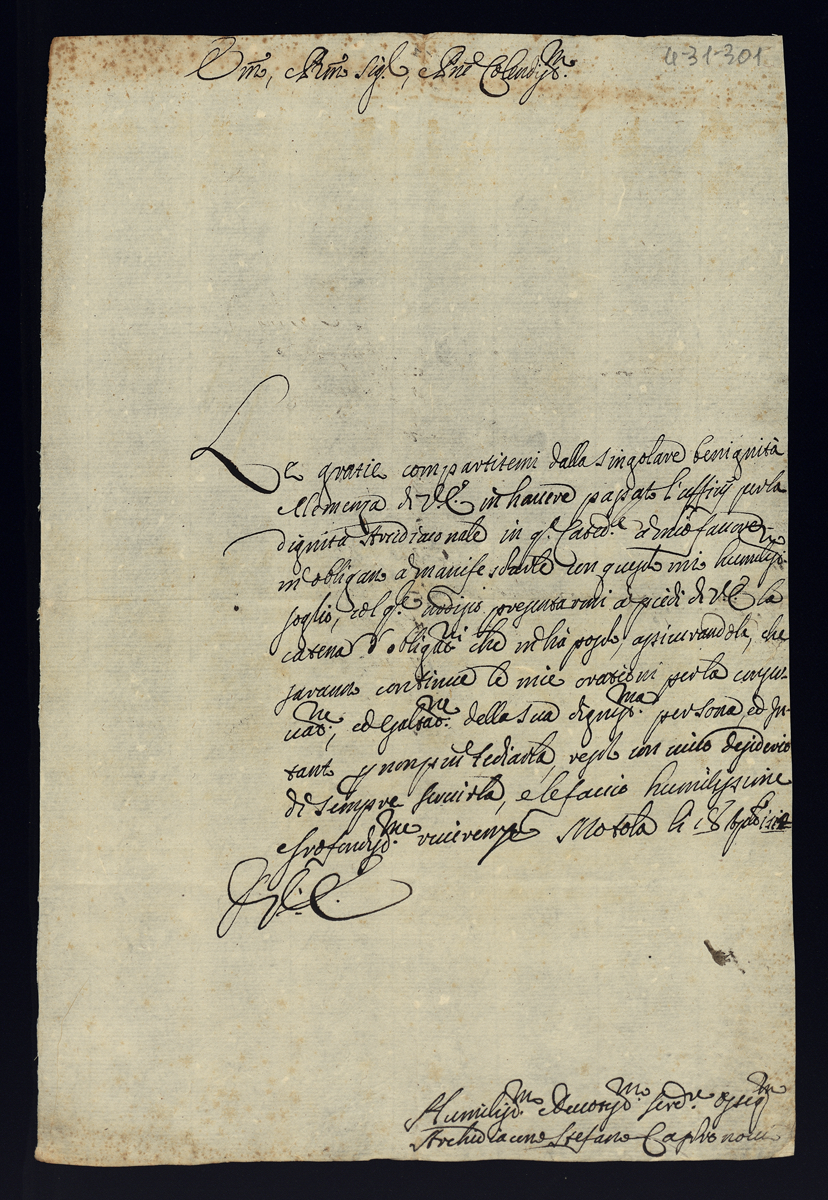 4-31-301
Em̃o, e Rm̃o Sig.r, e Pn̄e Colendiss.mo
Le gratie compartitemi dalla singolare benignità
e clemenza di V.E. in havere passato l'ufficij per la
dignità Archidiaconale in q.ta Catted.le à mio favore,
m'obligano à manifestarle con questo mio humiliss.o
foglio, col q.le ardisco presentarmi à piedi di V.E. la
catena d'oblig.ni che m'hà posto, assicurandola, che
saranno continue le mie orationi per la conser-
vat.ne, ed esaltat.ne della sua digniss.ma persona, ed in-
tanto p non più tediarla, resto con vivo desiderio
di sempre servirla, e le faccio humilissime
e profondiss.me riverenze Motola li 18
Di V.E.
Humiliss.mo Devotiss.mo Serv.re Osseq.mo
Archidiacono Stefano